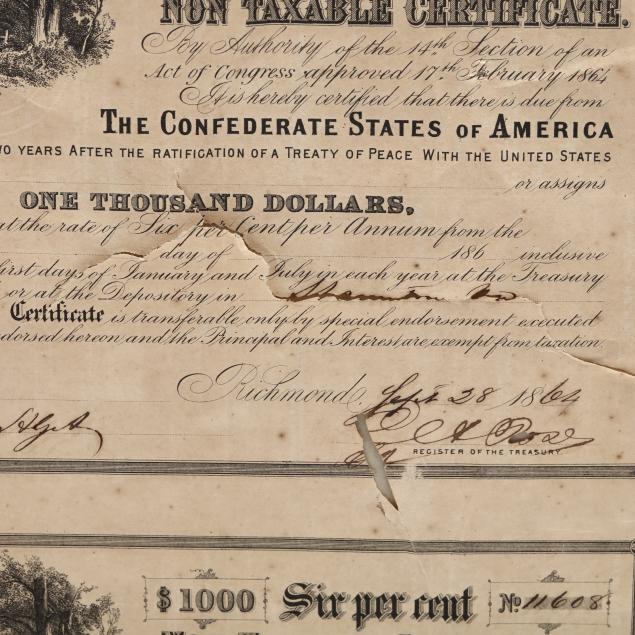 NON TAXABLE CERTIFICATE.
By Authority of the 14th Section of an
Act of Congress approved 17th February 1864
It is hereby certified that there is due from
THE CONFEDERATE STATES OF AMERICA
YEARS AFTER THE RATIFICATION OF A TREATY OF PEACE WITH THE UNITED STATES
or assigns
ONE THOUSAND DOLLARS,
at the rate of Six per Cent per Annum from the
day of 186 inclusive
first days of January and July in each year at the Treasury
or at the Depository in Staunton Va
Certificate is transferable only by special endorsement executed
hereon and the Principal and Interest are exempt from taxation.
Richmond, Sept 28 1864
REGISTER OF THE TREASURY
$1000 Six per cent No 11608